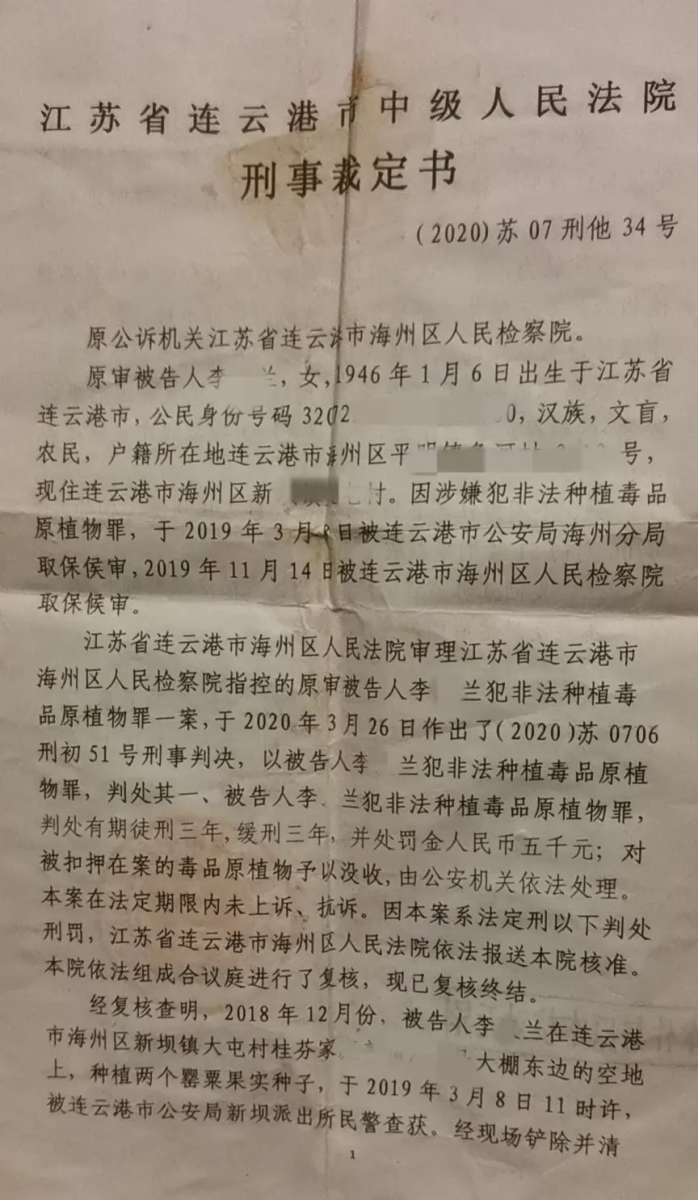 江苏省连云港市中级人民法院
刑事裁定书
(2020)苏07刑他34号
原公诉机关江苏省连云港市海州区人民检察院。
原审被告人李 兰，女，1946年1月6日出生于江苏省
连云港市，公民身份号码3202 0，汉族，文盲，
农民，户籍所在地连云港市海州区平明镇 号，
现住连云港市海州区新 村。因涉嫌犯非法种植毒品
原植物罪，于2019年3月8日被连云港市公安局海州分局
取保侯审，2019年11月14日被连云港市海州区人民检察院
取保候审。
江苏省连云港市海州区人民法院审理江苏省连云港市
海州区人民检察院指控的原审被告人李 兰犯非法种植毒
品原植物罪一案，于2020年3月26日作出了(2020)苏0706
刑初51号刑事判决，以被告人李 兰犯非法种植毒品原植
物罪，判处其一、被告人李 兰犯非法种植毒品原植物罪，
判处有期徒刑三年，缓刑三年，并处罚金人民币五千元；对
被扣押在案的毒品原植物予以没收，由公安机关依法处理。
本案在法定期限内未上诉、抗诉。因本案系法定刑以下判处
刑罚，江苏省连云港市海州区人民法院依法报送本院核准。
本院依法组成合议庭进行了复核，现已复核终结。
经复核查明，2018年12月份，被告人李 兰在连云港
市海州区新坝镇大屯村桂芬家 大棚东边的空地
上，种植两个罂粟果实种子，于2019年3月8日11时许，
被连云港市公安局新坝派出所民警查获。经现场铲除并清
1